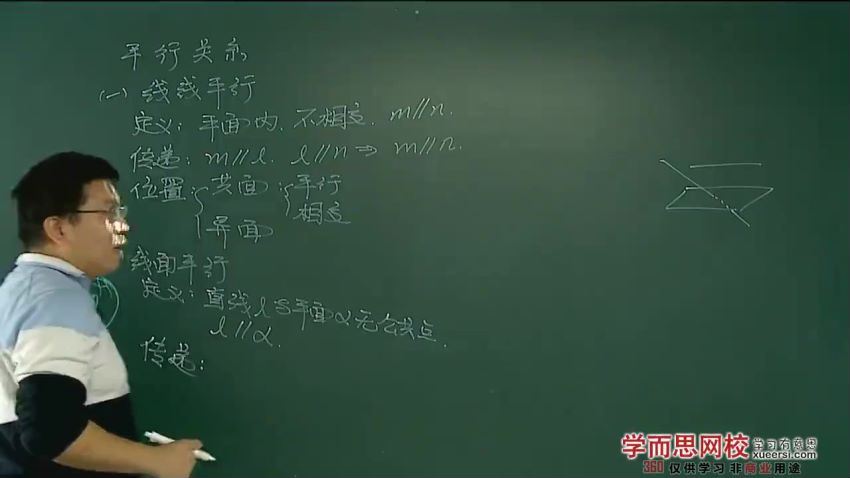 平行关系
(一) 线线平行
定义：平面内、不相交. m∥n.
传递：m∥l. l∥n ⇒ m∥n.
位置 { 共面：{ 平行
相交
异面
线面平行
定义：直线l与平面α无公共点.
l∥α.
传递：
学而思网校 学习有意思
xueersi.com
360 仅供学习 非商业用途